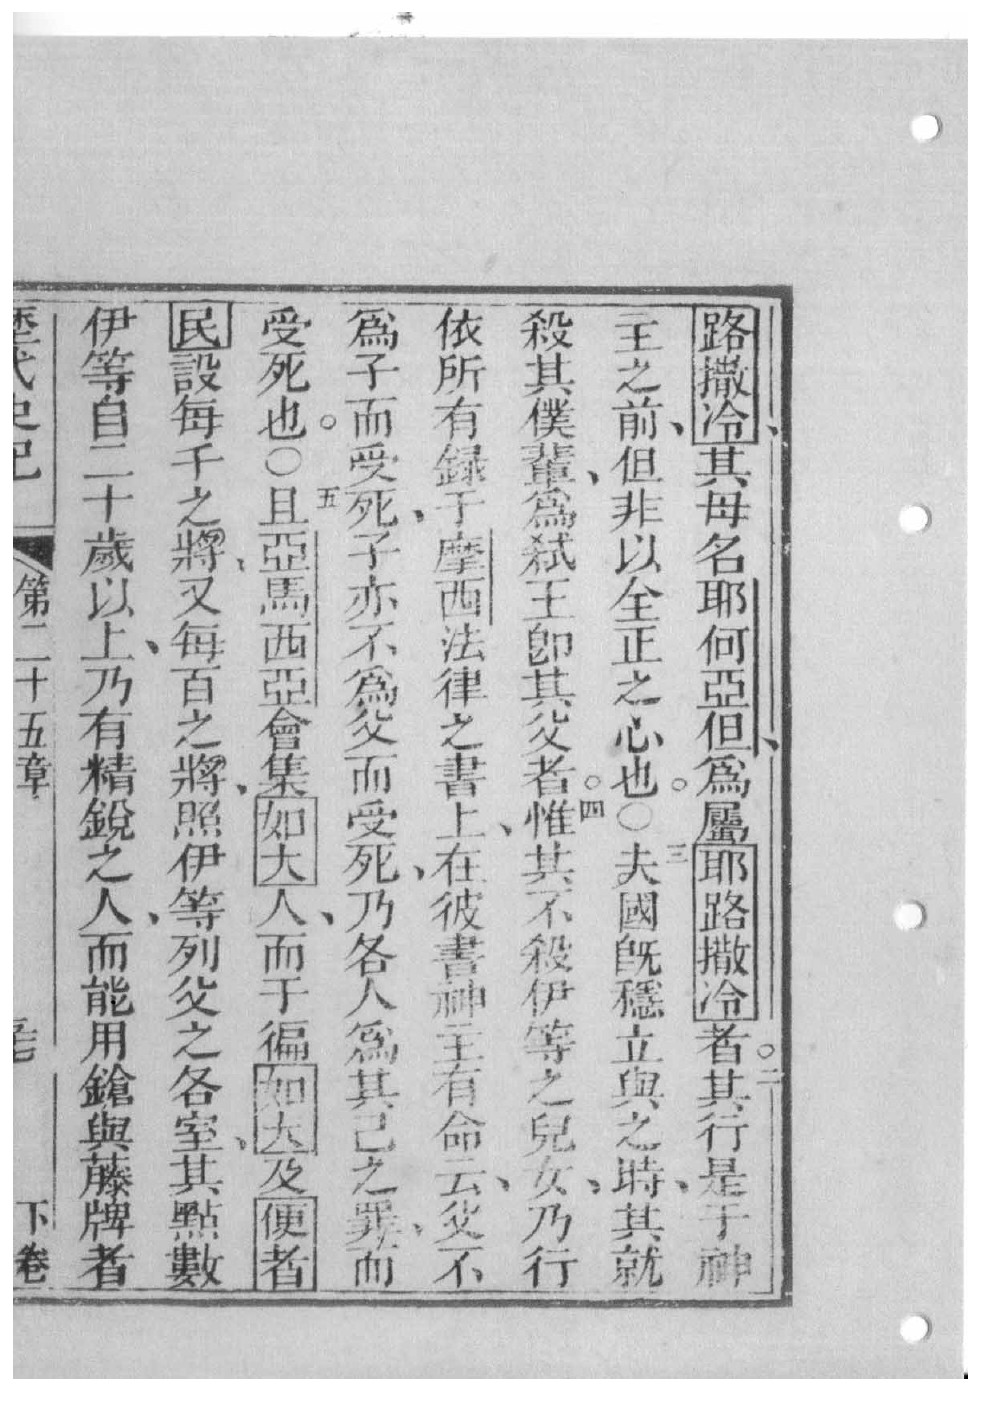 路撒冷、其母名耶何亞但、爲屬耶路撒冷者。二其行是于神
王之前、但非以全正之心也。〇三夫國既穩立與之時、其就
殺其僕輩、爲弑王卽其父者。四惟其不殺伊等之兒女、乃行
依所有録于摩西法律之書上、在彼書神主有命云、父不
爲子而受死、子亦不爲父而受死、乃各人爲其己之罪、而
受死也。〇五且亞馬西亞會集如大人、而于徧如大及便者
民設每千之將、又每百之將、照伊等列父之各室、其點數
伊等自二十歲以上、乃有精銳之人、而能用鎗與藤牌者
歷代史記 第二十五章 下卷